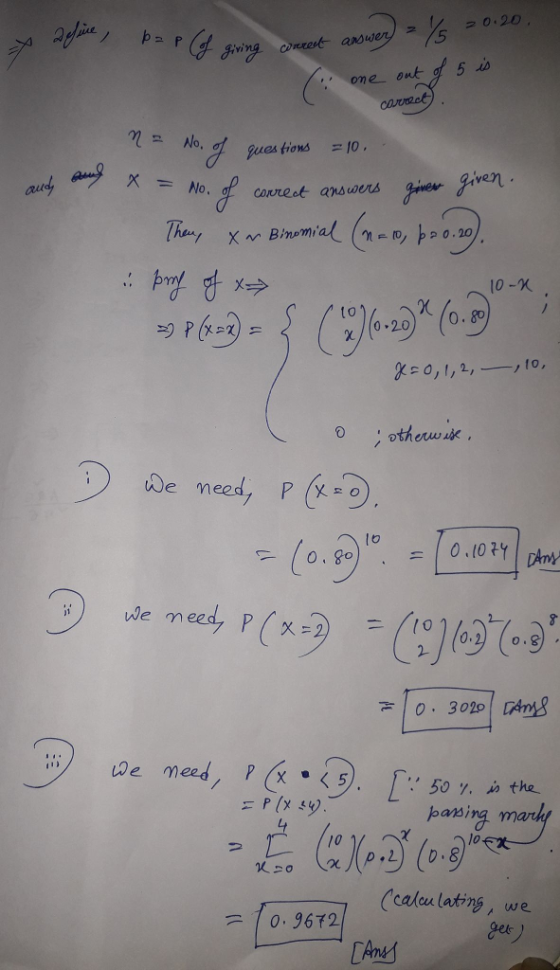 ⇒ Define, p = P (of giving correct answer) = 1/5 = 0.20.
(∵ one out of 5 is
correct).
n = No. of questions = 10.
and, X = No. of correct answers given.
Then, X ~ Binomial (n=10, p=0.20).
∴ pmf of X ⇒
⇒ P(X=x) = { (10 x) (0.20)^x (0.80)^10-x ;
x=0,1,2, —, 10.
0 ; otherwise.
i) We need, P(X=0).
= (0.80)^10. = 0.1074 [Ans]
ii) we need, P(X=2) = (10 2) (0.2)^2 (0.8)^8.
= 0.3020 [Ans]
iii) we need, P(X < 5). [∵ 50 %. is the
= P(X ≤ 4). passing marks
= Σ_{x=0}^{4} (10 x) (0.2)^x (0.8)^10-x
(calculating, we
= 0.9672 get)
[Ans]